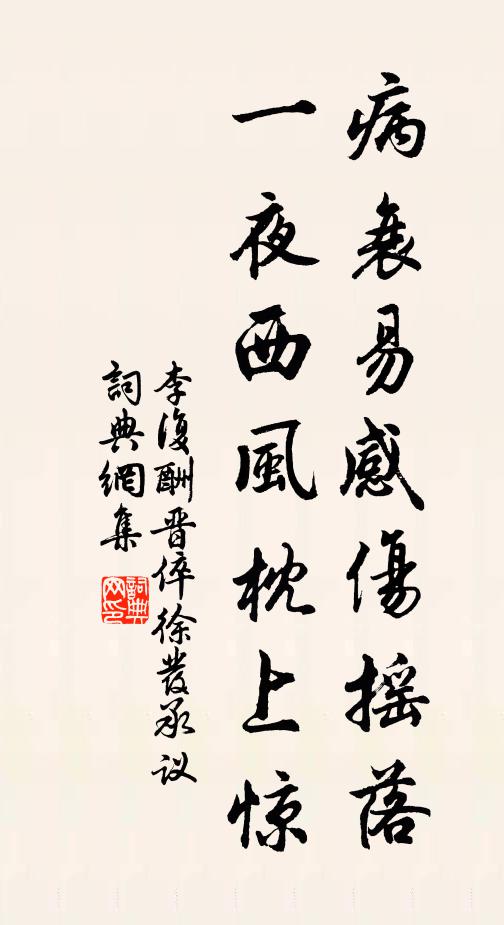 病衰易感傷摇落
一夜西風枕上惊
李復酬晋倅徐發承议
詞典網集
詞典网印